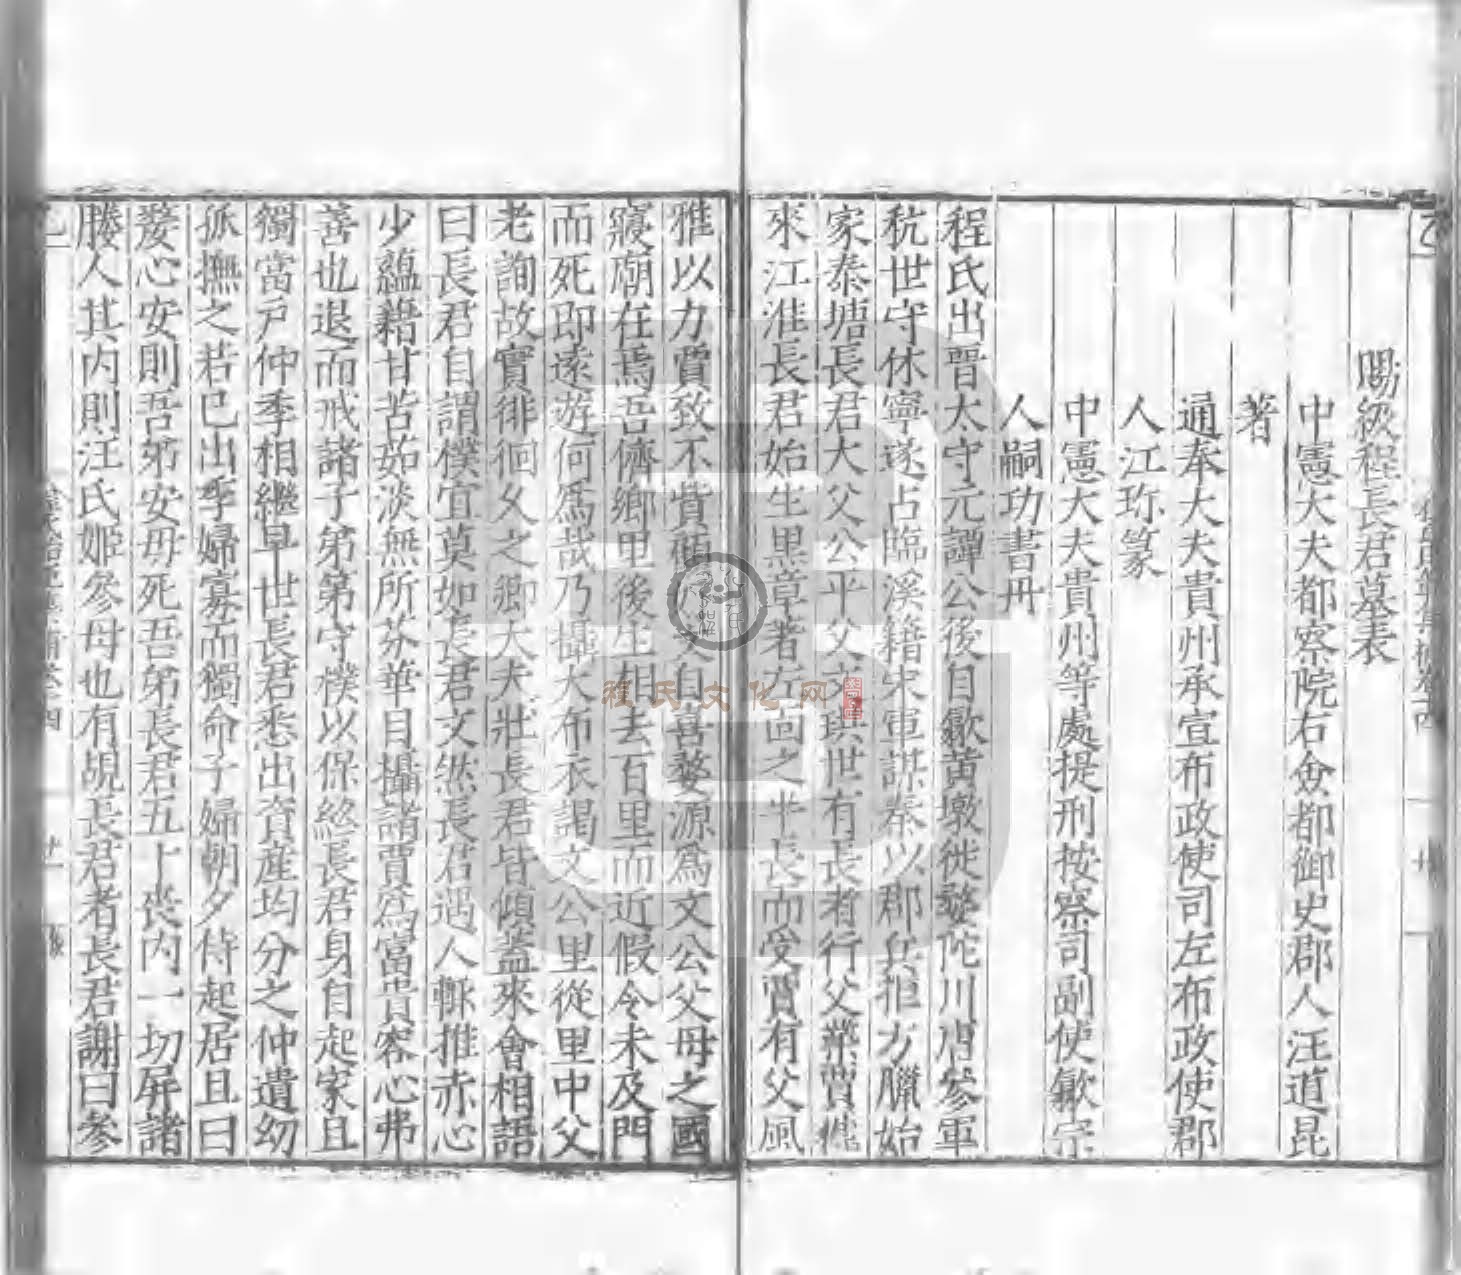 賜級程長君墓表
中憲大夫都察院右僉都御史郡人汪道昆
著
通奉大夫貴州承宣布政使司左布政使郡
人江珍篆
中憲大夫貴州等處提刑按察司副使歙宗
人嗣功書丹
程氏出晉太守元譚公後自歙黃墩徙婺陀川唐參軍
秔世守休寧遂占臨溪籍宋軍謀秦以郡兵拒方臘始
家秦塘長君大父公平父文琪世有長者行父業賈
來江淮長君始生黑章著左面之半長而受賈有父風
雅以力賈致不貲循父自喜婺源為文公父母之國
寢廟在焉吾儕鄉里後生相去百里而近假令未及門
而死即遠遊何為哉乃攝大布衣謁文公里從里中父
老詢故實徘徊久之卿大夫壯長君皆傾蓋來會相語
曰長君自謂樸宜莫如長君文然長君遇人輒推赤心
少蘊籍甘苦茹淡無所芬華目攝諸賈為富貴容心弗
善也退而戒諸子弟第守樸以保終長君身自起家且
獨當戶仲季相繼早世長君悉出資產均分之仲遺幼
孤撫之若已出季婦寡而獨命子婦朝夕侍起居且曰
嫠心安則吾弟安毋死吾弟長君五十喪內一切屏諸
媵人其內則汪氏姬參母也有覘長君者長君謝曰參
程文化网